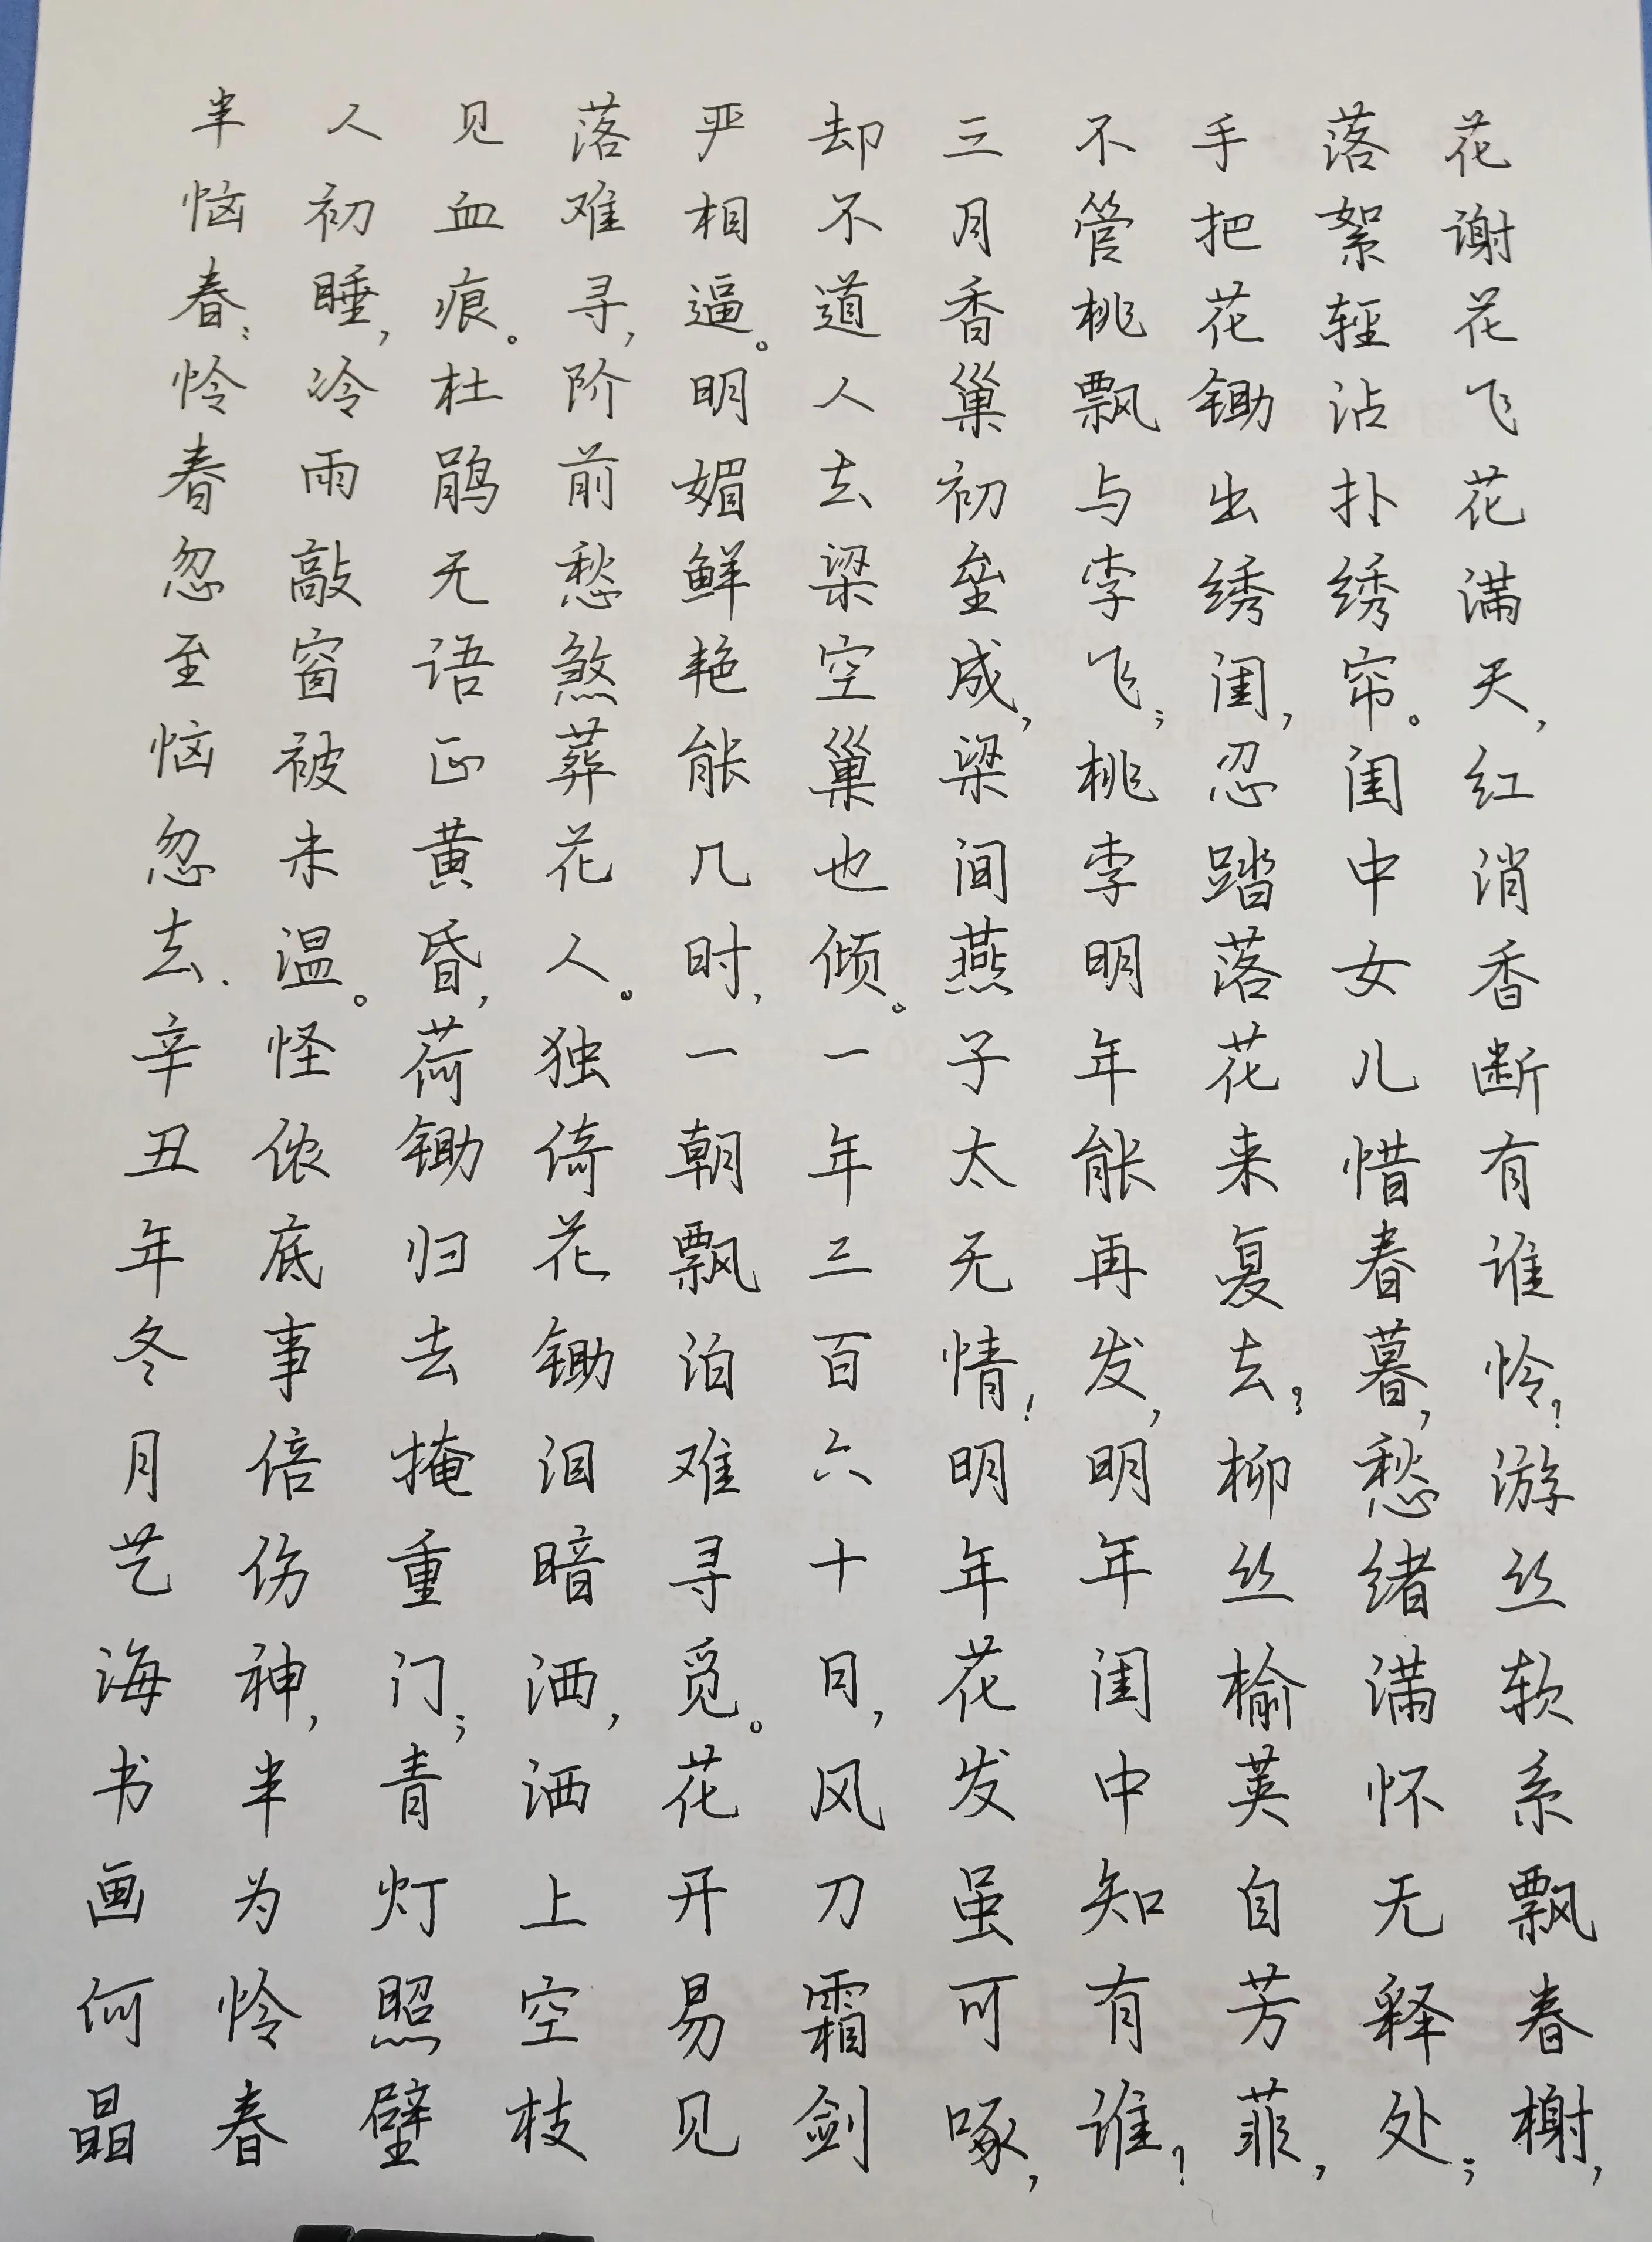 花谢花飞花满天,红消香断有谁怜?游丝软系飘春榭,
落絮轻沾扑绣帘。闺中女儿惜春暮,愁绪满怀无释处;
手把花锄出绣闺,忍踏落花来复去?柳丝榆荚自芳菲,
不管桃飘与李飞;桃李明年能再发,明年闺中知有谁?
三月香巢初垒成,梁间燕子太无情!明年花发虽可啄,
却不道人去梁空巢也倾。一年三百六十日,风刀霜剑
严相逼。明媚鲜艳能几时,一朝飘泊难寻觅。花开易见
落难寻,阶前愁煞葬花人。独倚花锄泪暗洒,洒上空枝
见血痕。杜鹃无语正黄昏,荷锄归去掩重门;青灯照壁
人初睡,冷雨敲窗被未温。怪侬底事倍伤神,半为怜春
半恼春:怜春忽至恼忽去.辛丑年冬月艺海书画何晶